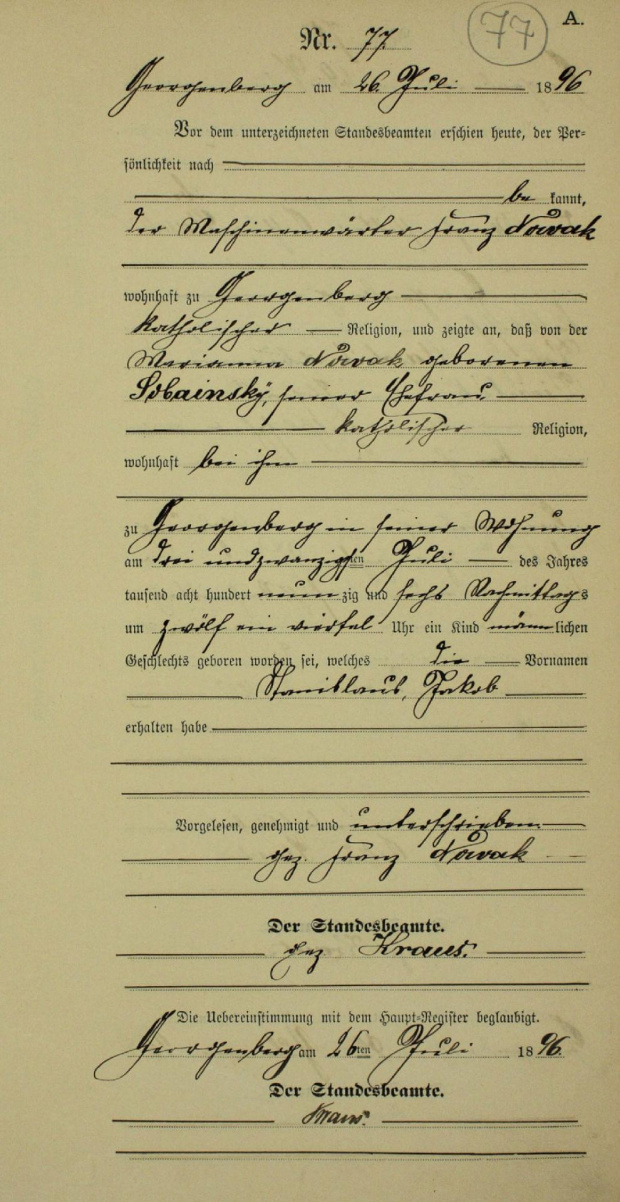 A.
77
Nr. 77.
Georgenberg am 26. Juli 1896
Vor dem unterzeichneten Standesbeamten erschien heute, der Per-
sönlichkeit nach
be kannt,
der Maschinenwärter Franz Nowak
wohnhaft zu Georgenberg
katholischer Religion, und zeigte an, daß von der
Marianna Nowak geborenen
Sobainsky, seiner Ehefrau
katholischer Religion,
wohnhaft bei ihm
zu Georgenberg in seiner Wohnung
am drei undzwanzigsten Juli des Jahres
tausend acht hundert neunzig und sechs Nachmittags
um zwölf ein viertel Uhr ein Kind männlichen
Geschlechts geboren worden sei, welches die Vornamen
Stanislaus, Jakob
erhalten habe
Vorgelesen, genehmigt und unterschrieben
gez. Franz Nowak
Der Standesbeamte.
gez Kraus.
Die Uebereinstimmung mit dem Haupt-Register beglaubigt.
Georgenberg am 26ten Juli 1896.
Der Standesbeamte.
Kraus.